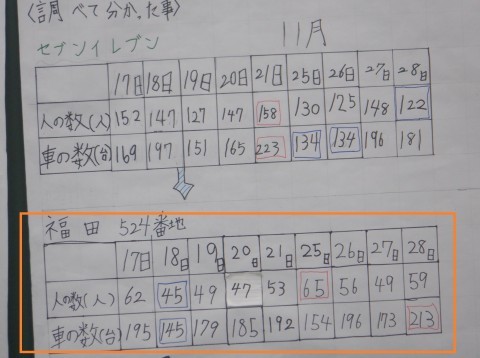 〈調べて分かった事〉
セブンイレブン 11月
17日 18日 19日 20日 21日 25日 26日 27日 28日
人の数(人) 152 147 127 147 158 130 125 148 122
車の数(台) 169 197 151 165 223 134 134 196 181
福田 524番地
17日 18日 19日 20日 21日 25日 26日 27日 28日
人の数(人) 62 45 49 47 53 65 56 49 59
車の数(台) 195 145 179 185 192 154 196 173 213